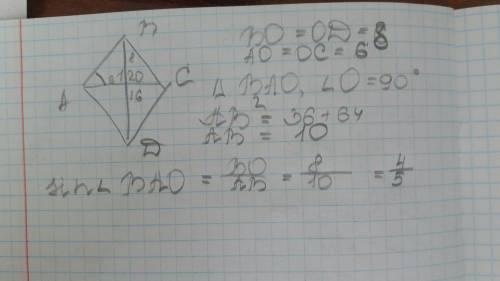 B
8
120
16
A
C
D
BO = OD = 8
AO = OC = 6
△ BAO, ∠O = 90°
AB² = 36 + 64
AB = 10
sin∠ BAO = BO/AB = 8/10 = 4/5